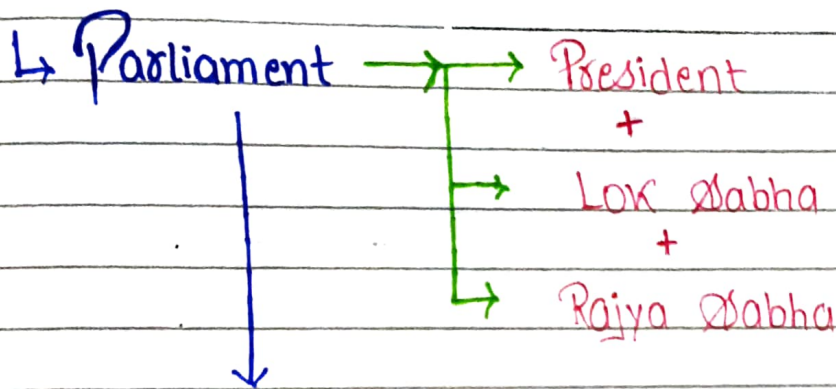 ↳ Parliament → President
+
Lok Sabha
+
Rajya Sabha